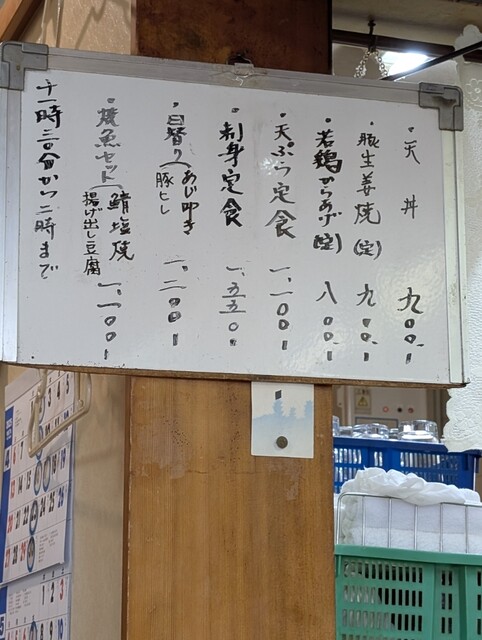 ・天丼 九〇〇、
・豚生姜焼(定) 九〇〇、
・若鶏からあげ(定) 八〇〇、
・天ぷら定食 一、一〇〇、
・刺身定食 一、五五〇、
・日替り(あじ叩き 豚ヒレ 一、二〇〇、
・焼魚セット(鯖塩焼 揚げ出し豆腐 一、一〇〇、
十一時三〇分から二時まで